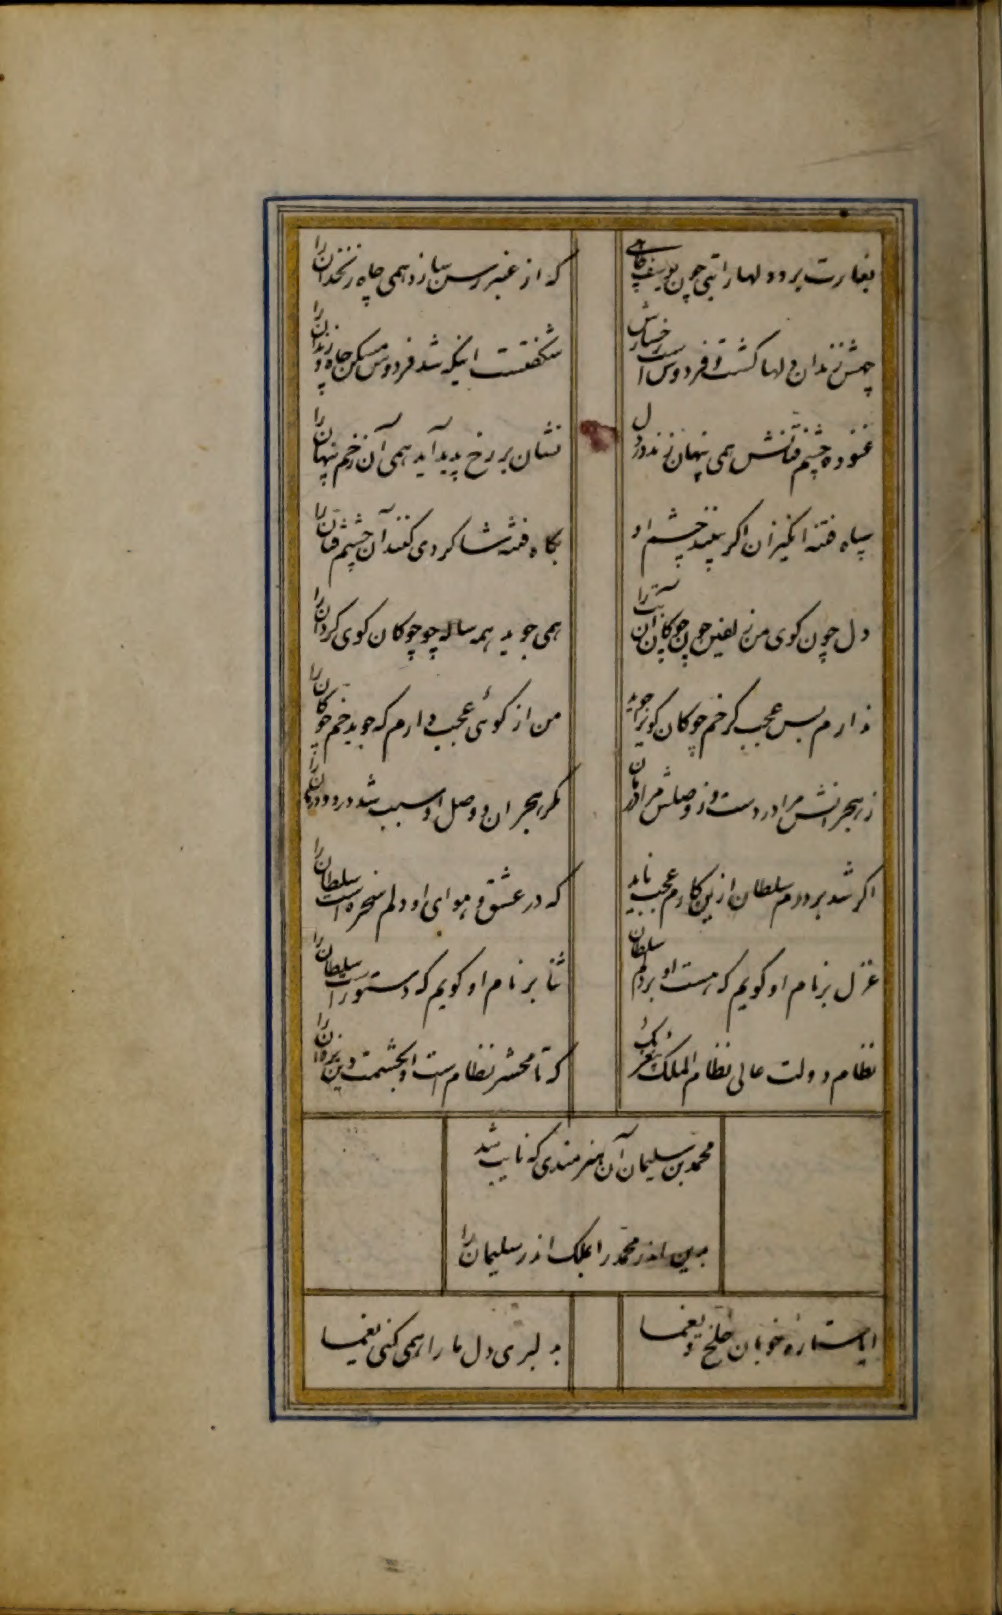 بغارت برد دلها را بتی چون یوسف چاهی
که از عنبر رسن سازد همی چاه زنخدان را
چهش زندان دلها گشت و فردوس است رخسارش
شکفتست اینکه شد فردوس مسکن چاه و زندان را
غنوده چشم فتانش همی پنهان زند در دل
نشان بر رخ پدید آید همی آن زخم پنهان را
سپاه فتنه انگیزان اگر بینند چشم او
بگاه فتنه شاگردی کنند آن چشم فتان را
دل چون گوی من زلفین چون چوگان آن بت را
همی جوید همه ساله چو چوگان گوی گردان را
ندارم بس عجب گر خم چوگان گوی را جوید
من از گوئی عجب دارم که جوید خم چوگان را
ز هجرانش مرا دردست و از وصلش مرا درمان
مگر هجران و وصل او سبب شد درد و درمان را
اگر شد بر دلم سلطان ازین کارم عجب ناید
که در عشق و هوای او دلم سخره است سلطان را
غزل بر نام او گویم که هست او بر دلم سلطان
ثنا بر نام او گویم که دستورست سلطان را
نظام دولت عالی نظام الملک
که تا محشر نظام است او بحشمت دین یزدان را
محمد بن سلیمان آن هنرمندی که نایب شد
بدین اندر محمد را بملک اندر سلیمان را
ایا ستاره خوبان خلخ و یغما
بدلبری دل ما را همی کنی یغما